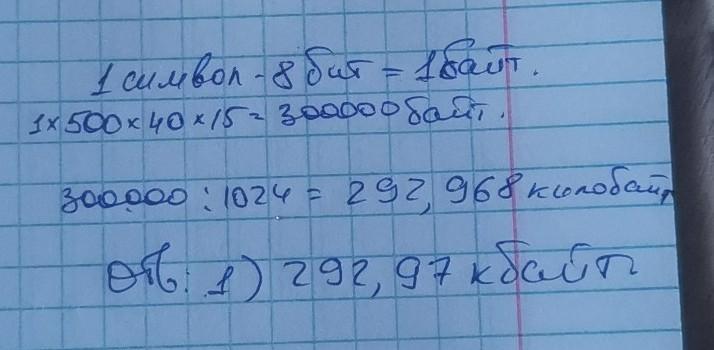 1 символ - 8 бит = 1 байт.
1×500×40×15 = 300000 байт.
300000 : 1024 = 292,968 килобайт
Отв: 1) 292,97 кбайт